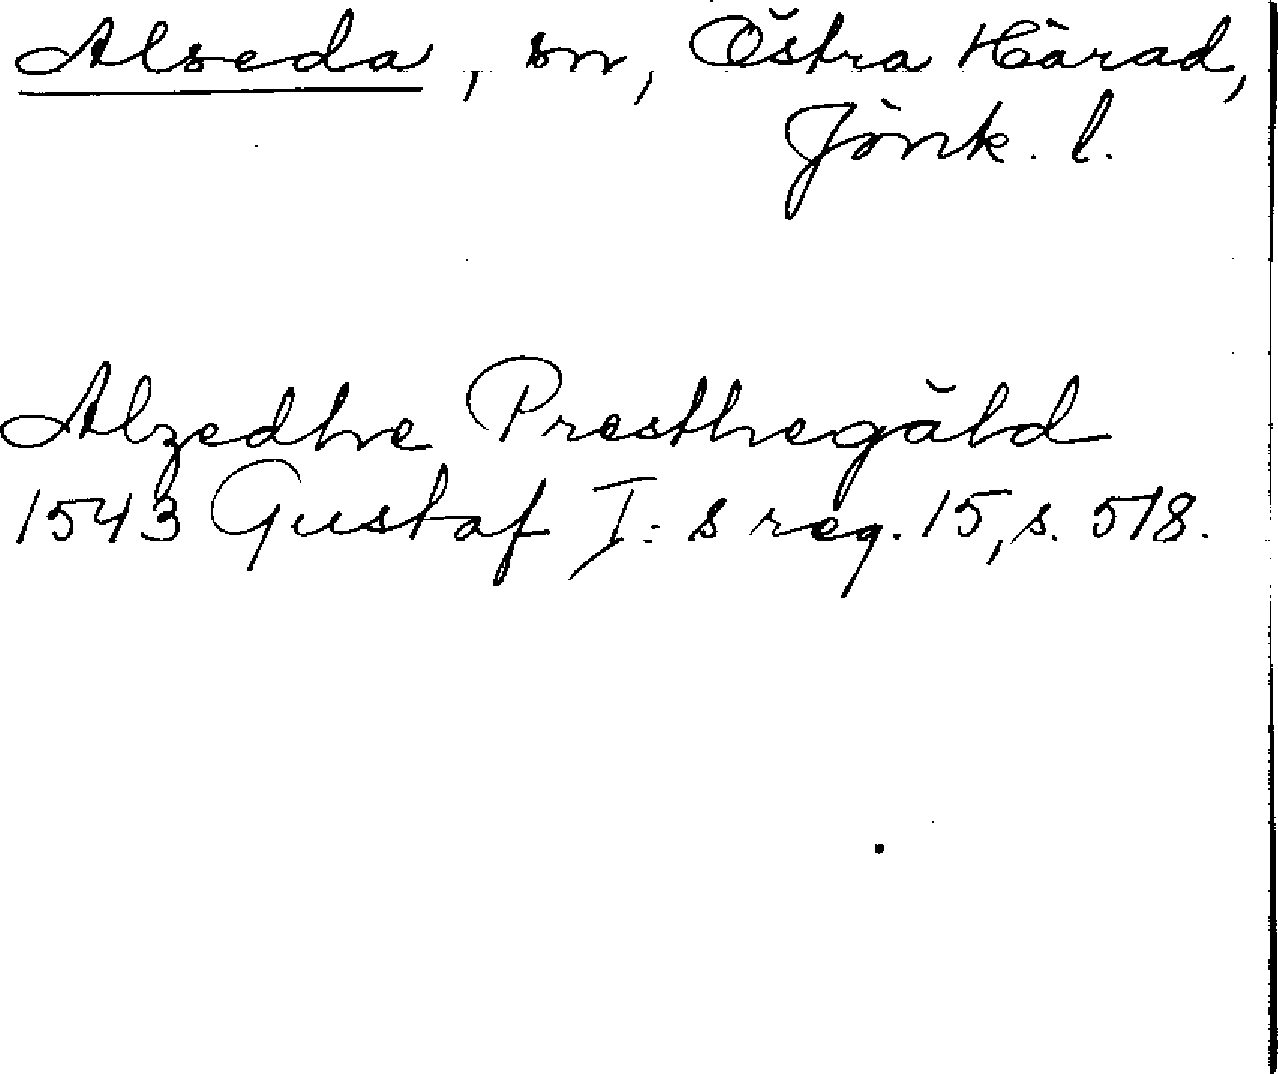 Alseda, sn, Östra Härad,
Jönk. l.
Alzedhe Presthegäld
1543 Gustaf I:s reg. 15, s. 518.